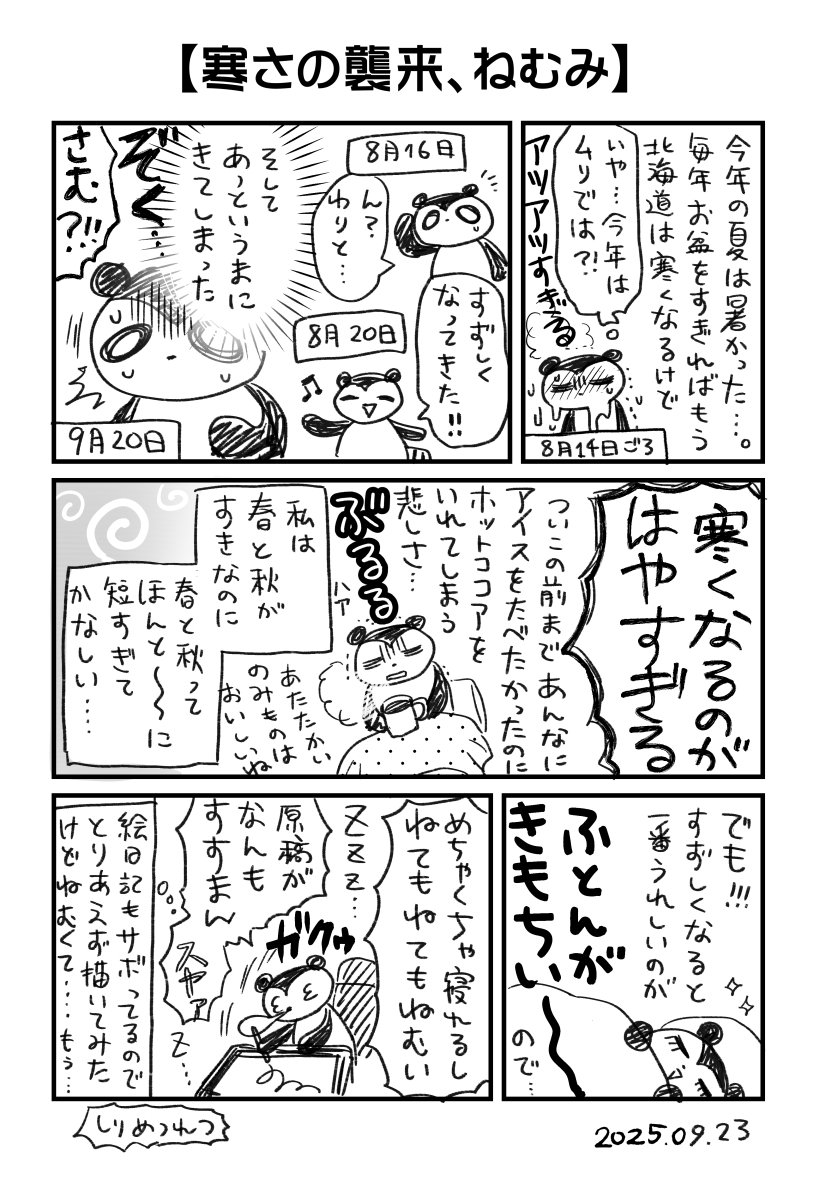 【寒さの襲来、ねむみ】
今年の夏は暑かった…。
毎年お盆をすぎればもう
北海道は寒くなるけど
いや…今年は
ムリでは?!
アツアツすぎる
8月14日ごろ
8月16日
ん?
わりと…
すずしく
なってきた!!
8月20日
♪
そして
あっというまに
きてしまった
ぞく…
さむ?!!
9月20日
寒くなるのが
はやすぎる
ついこの前まであんなに
アイスをたべたかったのに
ホットココアを
いれてしまう
悲しさ…
ぶるるる
ハア
あたたかい
のみものは
おいしいね
私は
春と秋が
すきなのに
春と秋って
ほんと〜〜に
短すぎて
かなしい……
でも!!!
すずしくなると
一番うれしいのが
ふとんが
きもちぃ〜
ので…
めちゃくちゃ寝れるし
ねてもねてもねむい
ZZZ…
原稿が
なんも
すすまん
ガクゥ
スヤァ
Z…
絵日記もサボってるので
とりあえず描いてみた
けどねむくて…もう…
しりめつれつ
2025.09.23